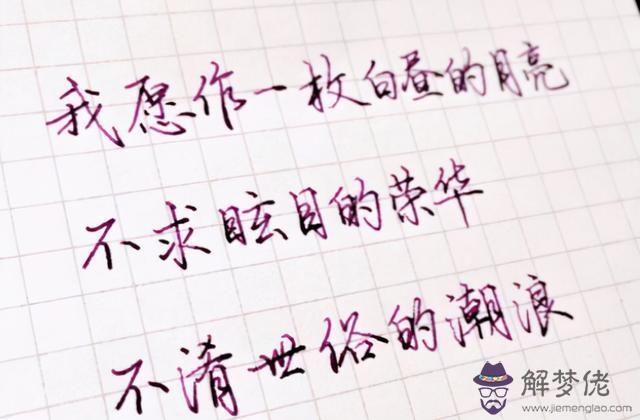 我愿作一枚白昼的月亮
不求眩目的荣华
不淆世俗的潮浪
解梦佬
www.jiemenglao.com